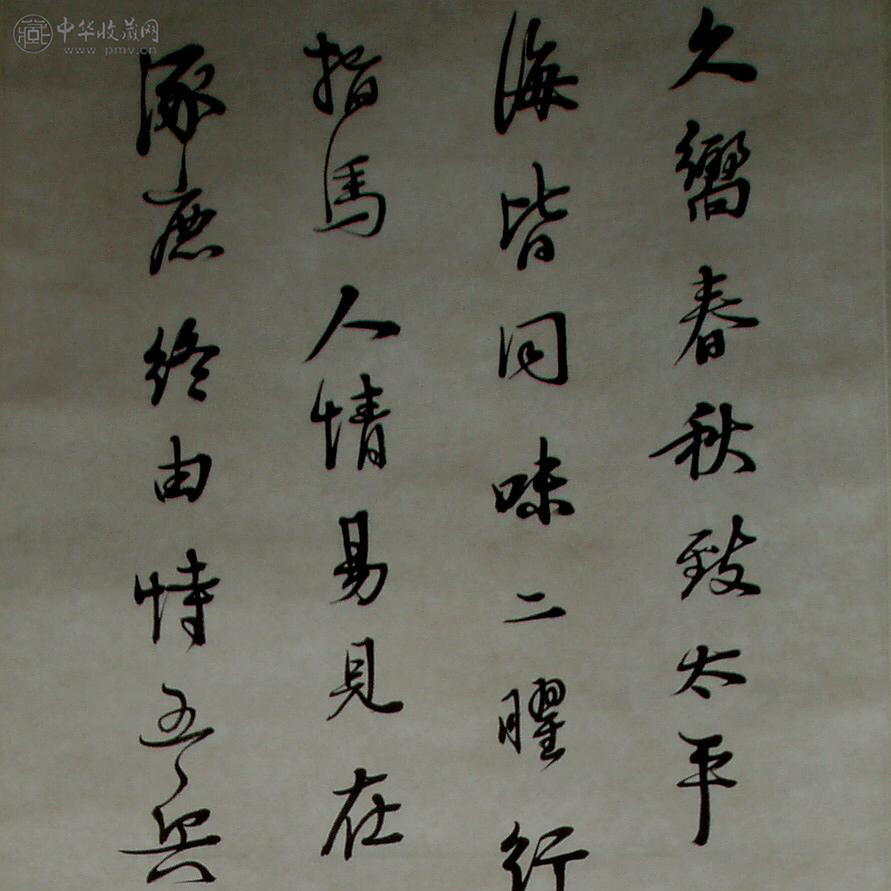 久嚮春秋致太平
海皆同味二曜行
指馬人情易見在
涿鹿終由恃五兵
中华收藏网
www.pmv.cn